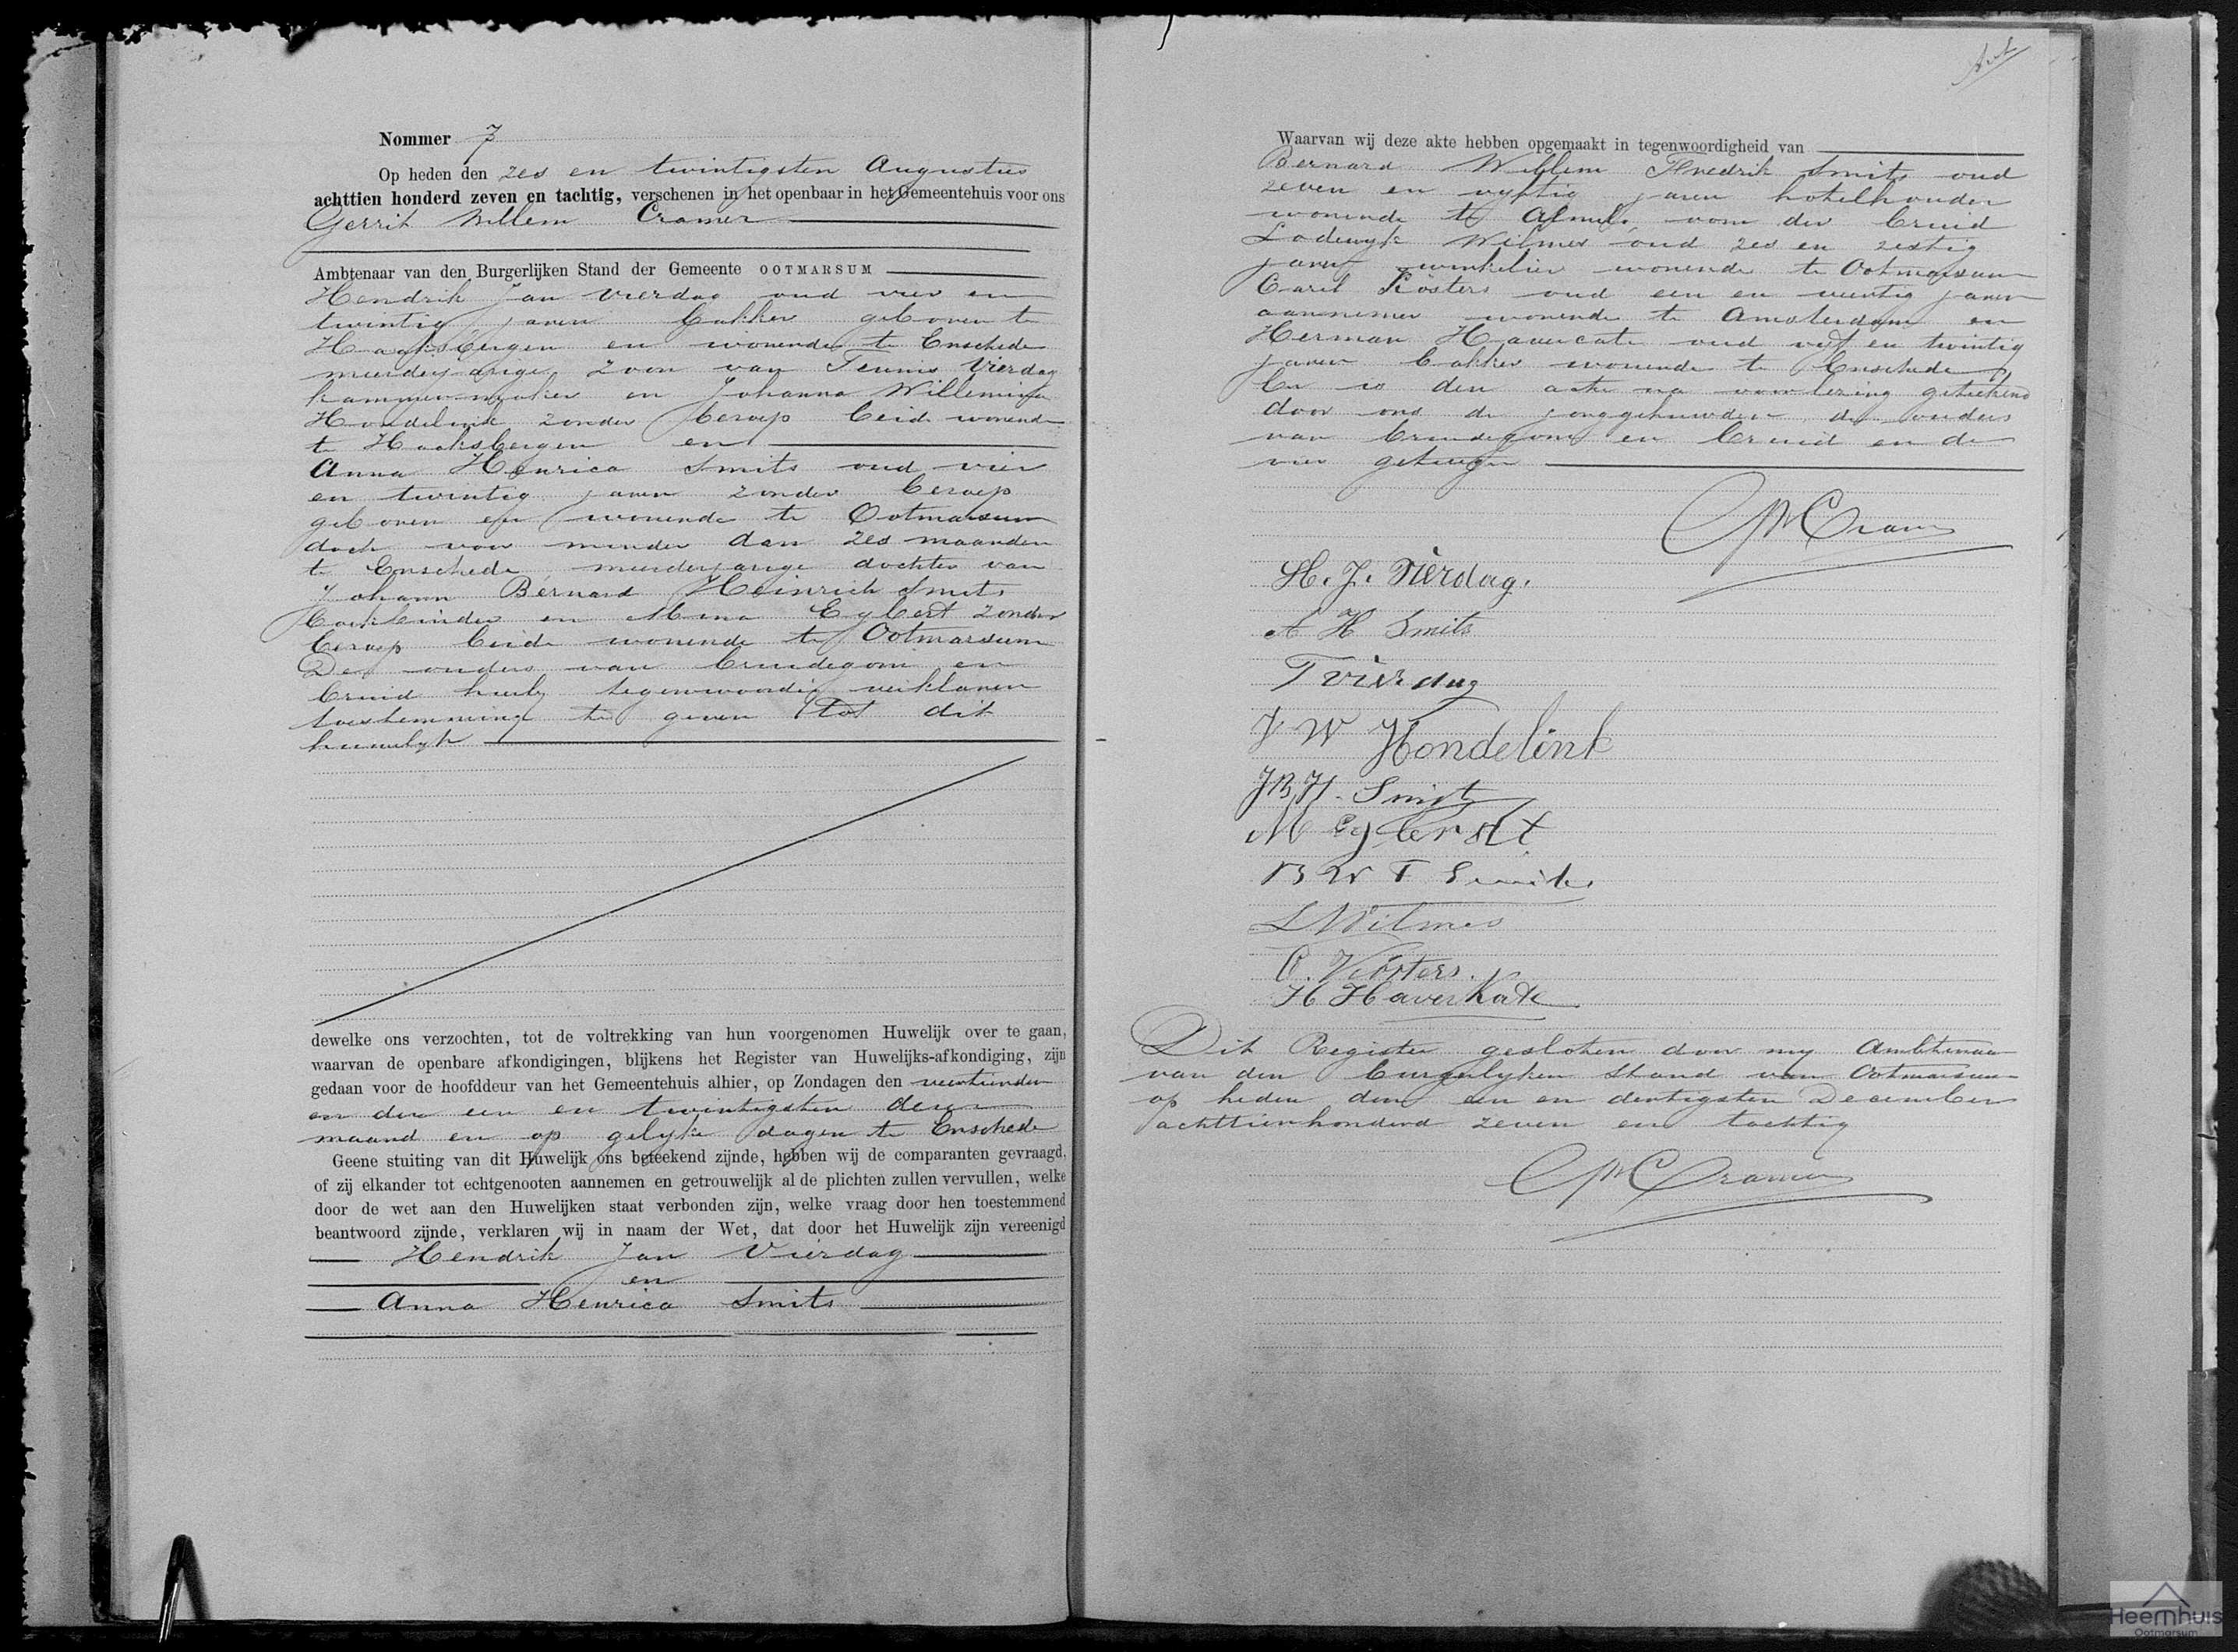 Nommer 7
Op heden den zes en twintigsten Augustus
achttien honderd zeven en tachtig, verschenen in het openbaar in het Gemeentehuis voor ons
Gerrit Willem Cramer
Ambtenaar van den Burgerlijken Stand der Gemeente OOTMARSUM
Hendrik Jan Vierdag oud vier en
twintig jaren bakker geboren te
Haaksbergen en wonende te Enschede
meerderjarige zoon van Teunis Vierdag
kammenmaker en Johanna Willemina
Hondelink zonder beroep beide wonende
te Haaksbergen en
Anna Henrica Smits oud vier
en twintig jaren zonder beroep
geboren en wonende te Ootmarsum
doch voor minder dan zes maanden
te Enschede meerderjarige dochter van
Johann Bernard Heinrich Smits
boekbinder en Mina Egbert zonder
beroep beide wonende te Ootmarsum
De ouders van bruidegom en
bruid hierby tegenwoordig verklaren
toestemming te geven tot dit
huwelyk
dewelke ons verzochten, tot de voltrekking van hun voorgenomen Huwelijk over te gaan,
waarvan de openbare afkondigingen, blijkens het Register van Huwelijks-afkondiging, zijn
gedaan voor de hoofddeur van het Gemeentehuis alhier, op Zondagen den veertienden
en den een en twintigsten dezer
maand en op gelyke dagen te Enschede
Geene stuiting van dit Huwelijk ons beteekend zijnde, hebben wij de comparanten gevraagd,
of zij elkander tot echtgenooten aannemen en getrouwelijk al de plichten zullen vervullen, welke
door de wet aan den Huwelijken staat verbonden zijn, welke vraag door hen toestemmend
beantwoord zijnde, verklaren wij in naam der Wet, dat door het Huwelijk zijn vereenigd
Hendrik Jan Vierdag
en
Anna Henrica Smits
Waarvan wij deze akte hebben opgemaakt in tegenwoordigheid van
Bernard Willem Smits oud
zeven en vyftig jaren hotelhouder
wonende te Almelo oom der bruid
Lodewyk Wilmes oud zes en zestig
jaren winkelier wonende te Ootmarsum
Carel Kösters oud een en veertig jaren
aannemer wonende te Amsterdam en
Herman Havercate oud vyf en twintig
jaren bakker wonende te Enschede
En is den acte na voorlezing geteekend
door ons de jonggehuwden de ouders
van bruidegom en bruid en de
vier getuigen
GWCramer
H. J. Vierdag.
A H Smits
T vierdag
J W Hondelink
J B H. Smits
M Egberst
B W T Smits
L Wilmes
C. Kösters.
H Haverkate
Dit Register gesloten door my Ambtenaar
van den burgerlyken stand van Ootmarsum
op heden den een en dertigsten December
achttienhonderd zeven en tachtig
GWCramer
Heemhuis
Ootmarsum